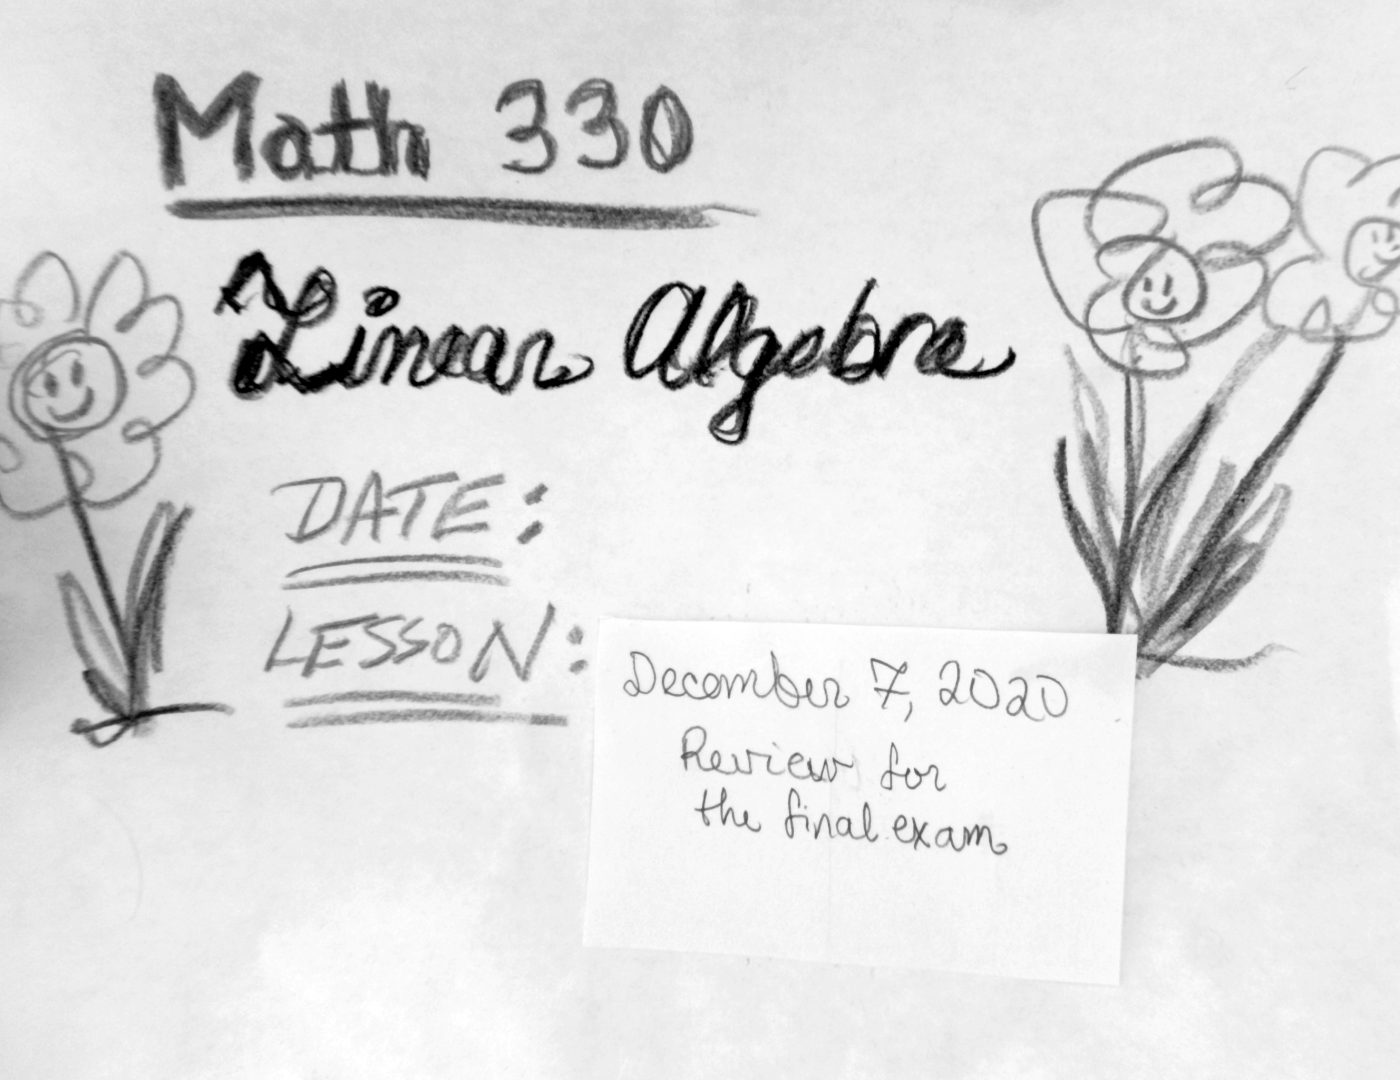 Math 330
Linear Algebra
DATE:
LESSON:
December 7, 2020
Review for
the final exam